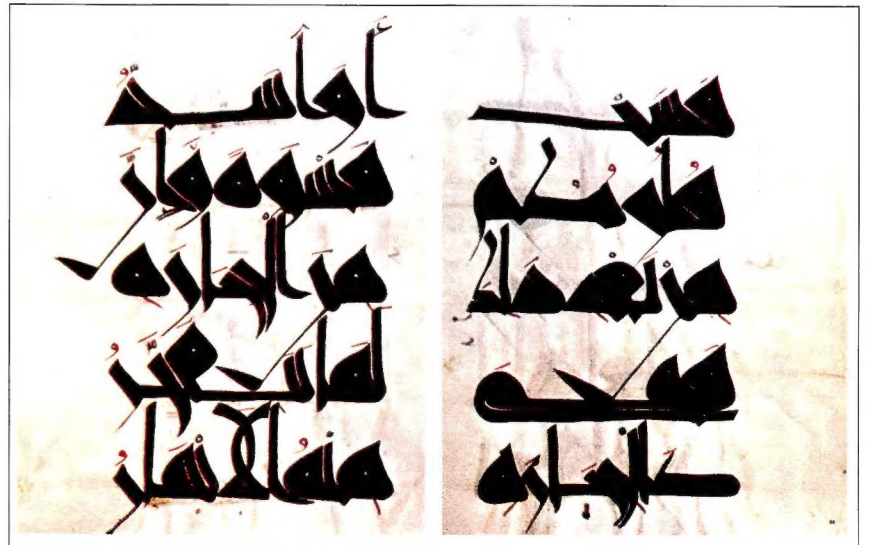 قست
قلوبكم
من بعد ذلك
فهي
كالحجارة
أو أشد
قسوة وإن
من الحجارة
لما يتفجر
منه الأنهر